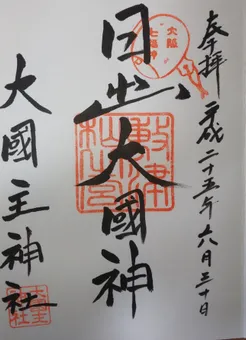 奉拝 平成二十五年六月三十日
大阪
七福神
日出大國神
敷津
大國主神社